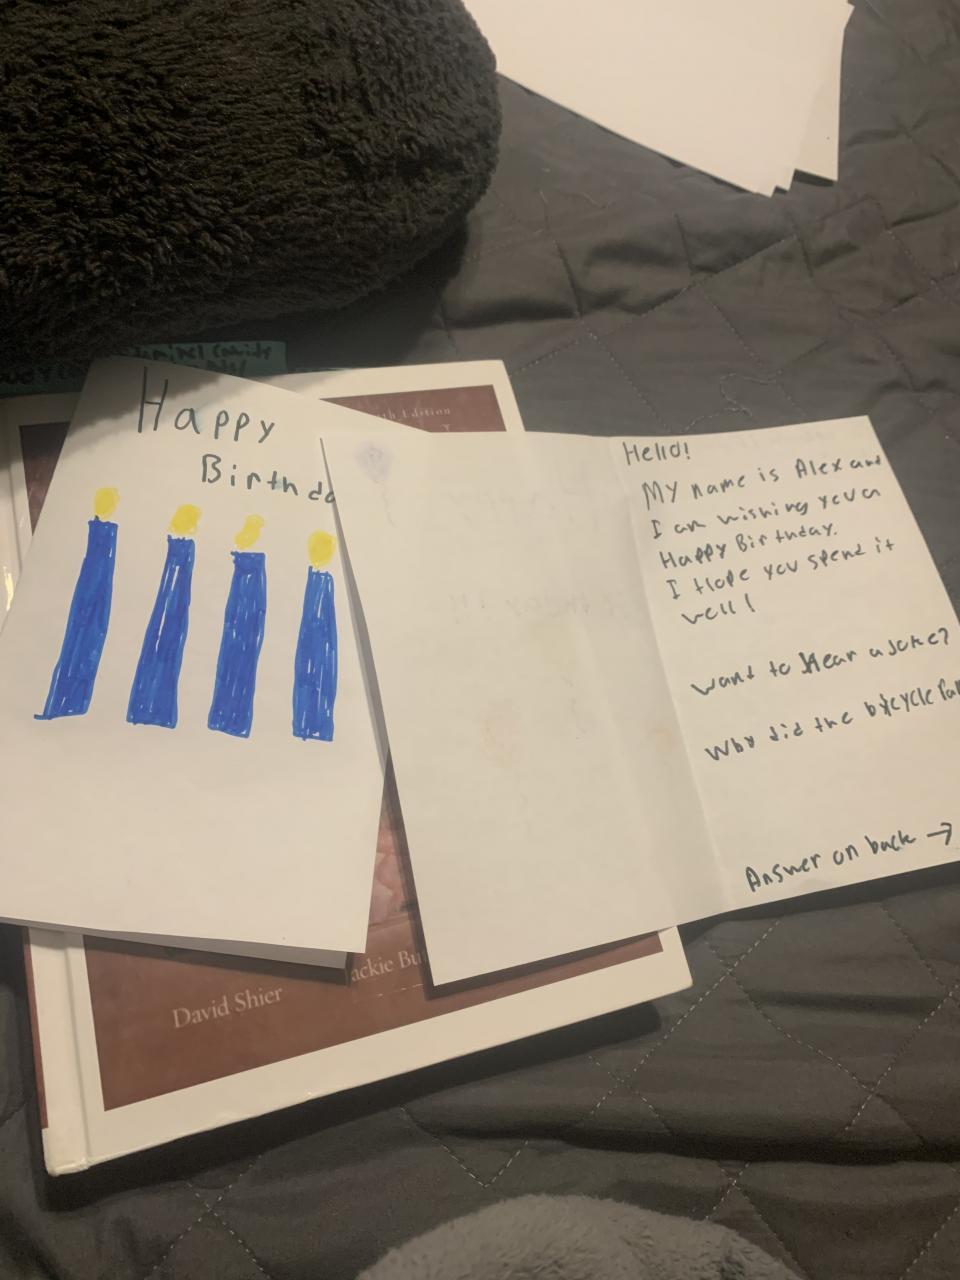 Happy
Birthda
Hello!
My name is Alex and
I am wishing you a
Happy Birthday.
I Hope you spend it
well!
want to Hear a Joke?
Why did the bycycle fal
Answer on back →
th Edition
David Shier
ackie Bu